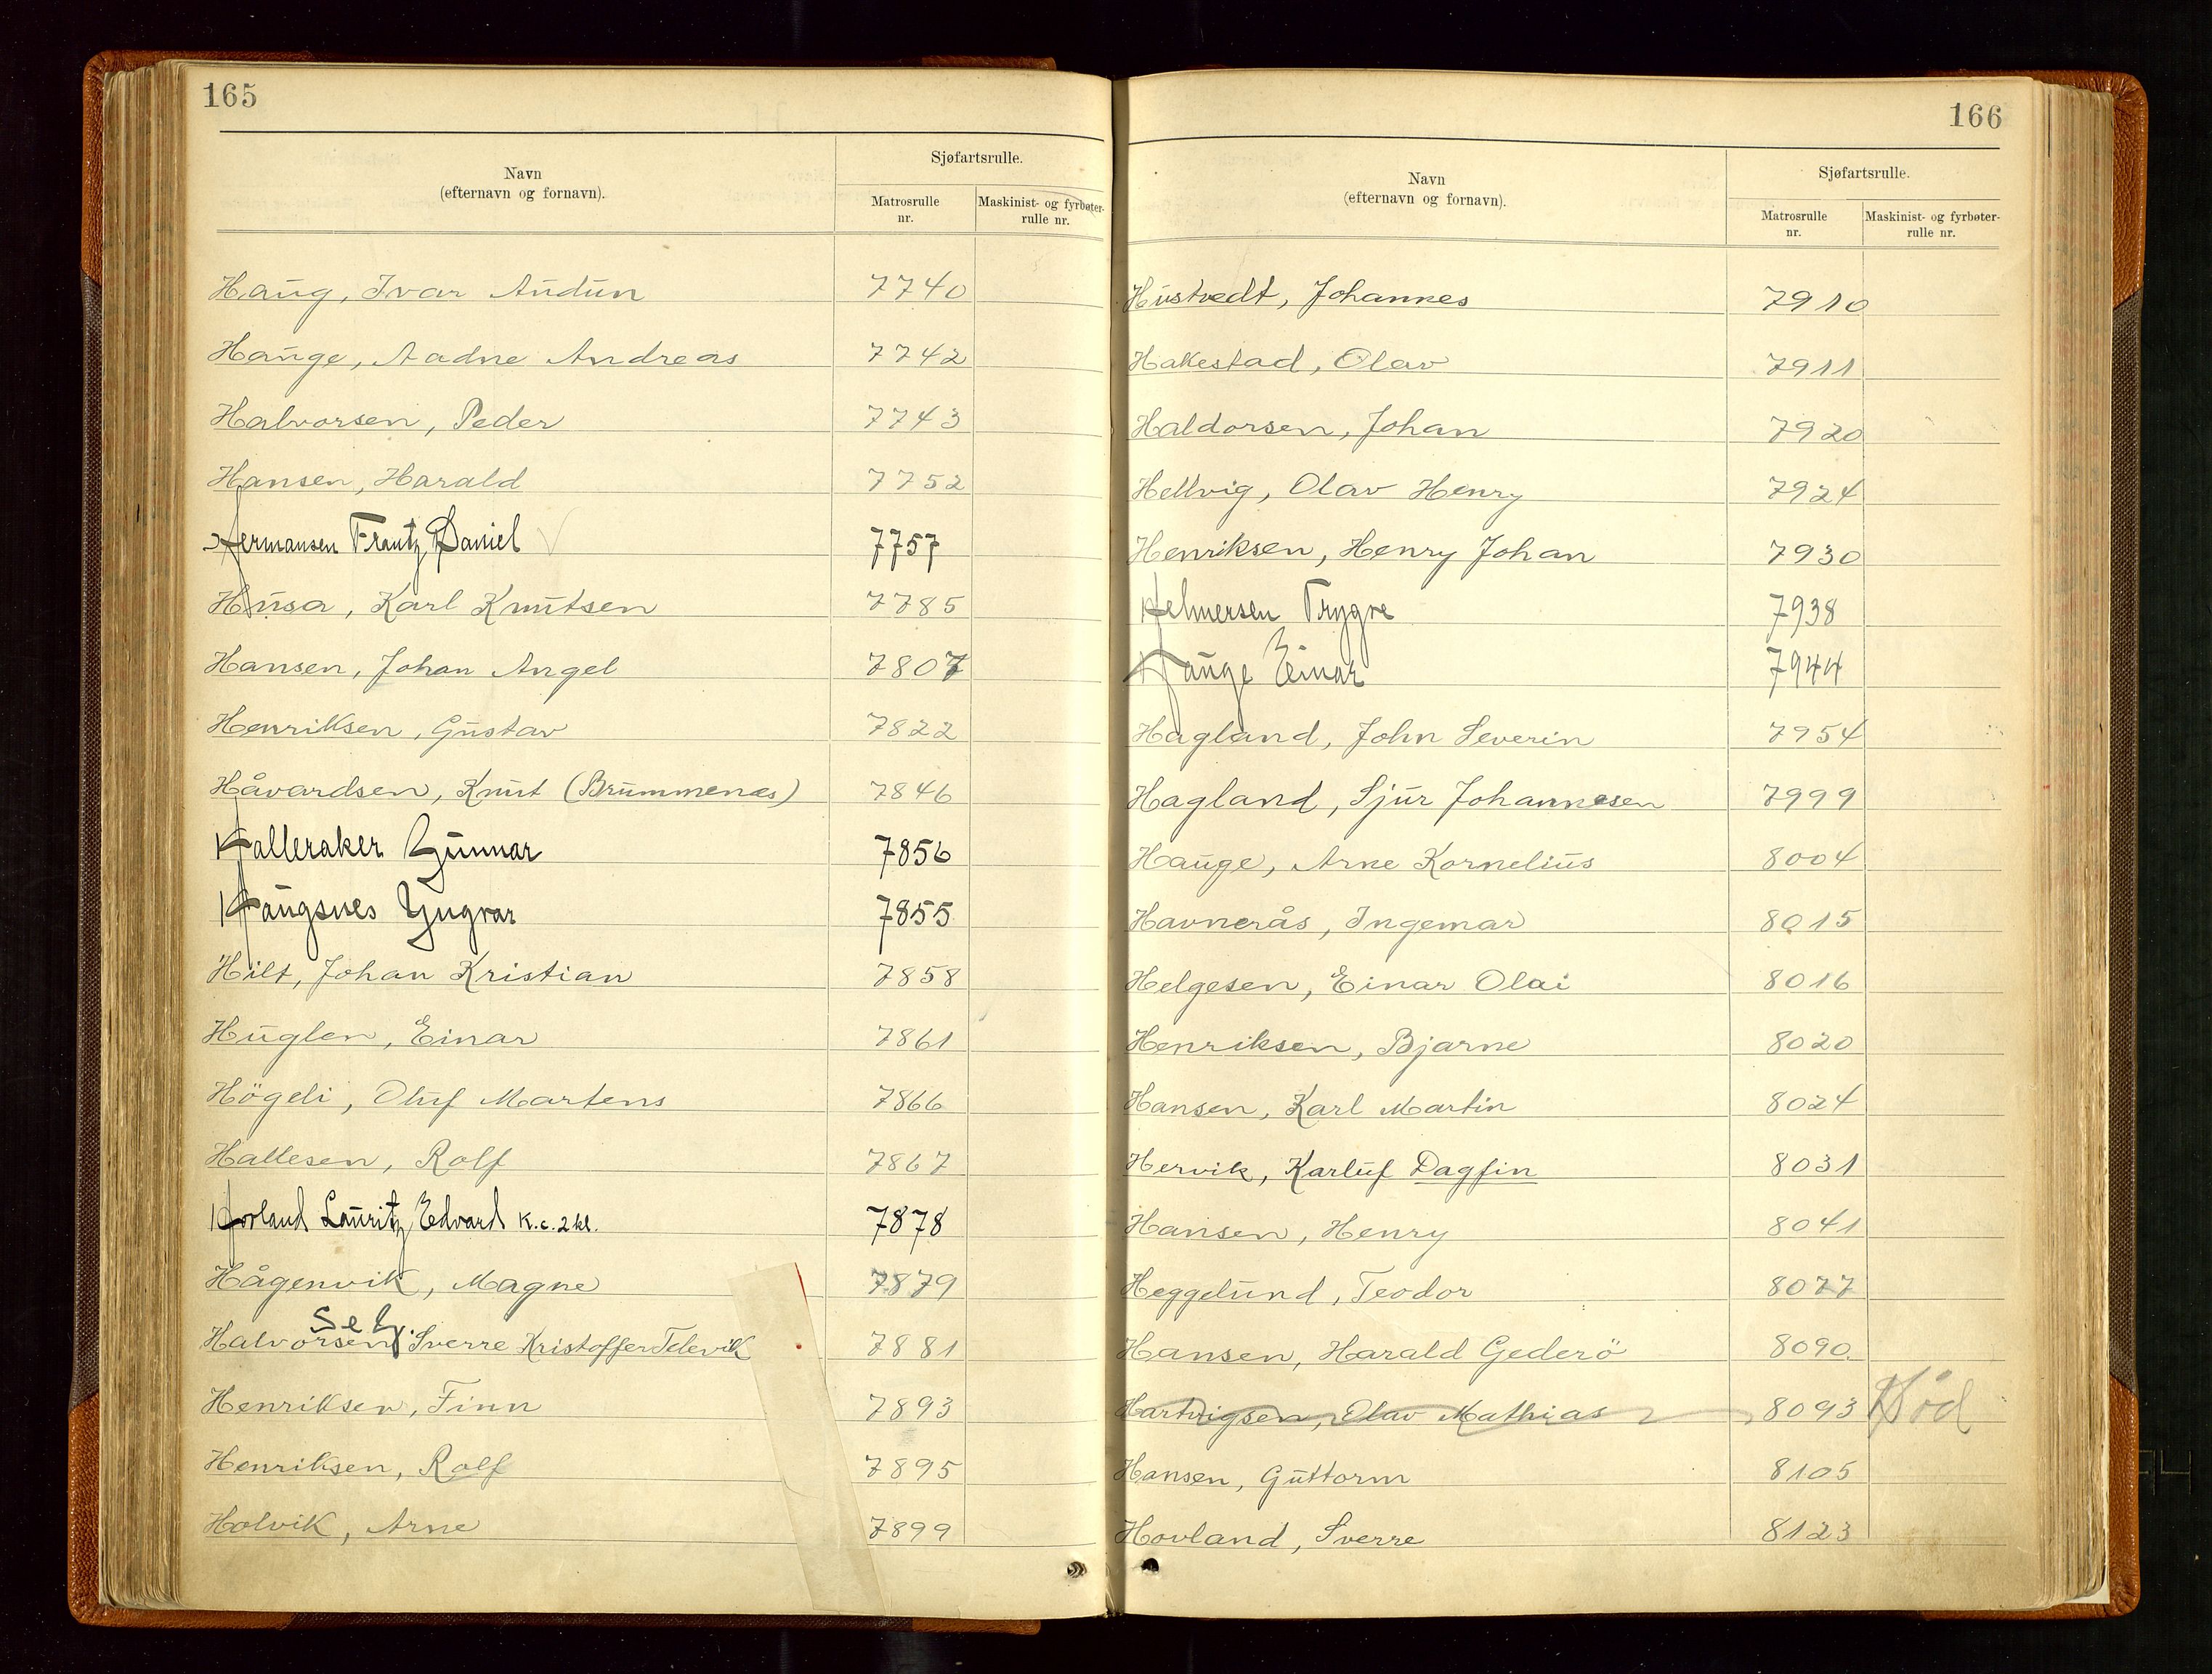 165
Navn
(efternavn og fornavn).
Sjøfartsrulle.
Matrosrulle nr.
Maskinist- og fyrbøter-rulle nr.
Haug, Ivar Audun 7740
Hauge, Aadne Andreas 7742
Halvorsen, Peder 7743
Hansen, Harald 7752
Hermansen Frantz Daniel 7757
Husa, Karl Knutsen 7785
Hansen, Johan Angel 7807
Henriksen, Gustav 7822
Håvardsen, Knut (Brummenæs) 7846
Halleraker Gunnar 7856
Haugsnes Yngvar 7855
Hilt, Johan Kristian 7858
Huglen, Einar 7861
Högeli, Oluf Martens 7866
Hallesen, Rolf 7867
Hovland Lauritz Edvard K.c. 2 kl. 7878
Hågenvik, Magne 7879
Halvorsen, Sverre Kristoffer Televik 7881
Henriksen, Finn 7893
Henriksen, Rolf 7895
Holvik, Arne 7899
166
Navn
(efternavn og fornavn).
Sjøfartsrulle.
Matrosrulle nr.
Maskinist- og fyrbøter-rulle nr.
Hustvedt, Johannes 7910
Hakestad, Olav 7911
Haldorsen, Johan 7920
Hellvig, Olav Henry 7924
Henriksen, Henry Johan 7930
Helmersen Trygve 7938
Hauge Einar 7944
Hagland, John Severin 7954
Hagland, Sjur Johannesen 7999
Hauge, Arne Kornelius 8004
Havnerås, Ingemar 8015
Helgesen, Einar Olai 8016
Henriksen, Bjarne 8020
Hansen, Karl Martin 8024
Hervik, Karluf Dagfin 8031
Hansen, Henry 8041
Heggelund, Teodor 8077
Hansen, Harald Gederö 8090
Hartvigsen, Olav Mathias 8093 Död
Hansen, Guttorm 8105
Hovland, Sverre 8123